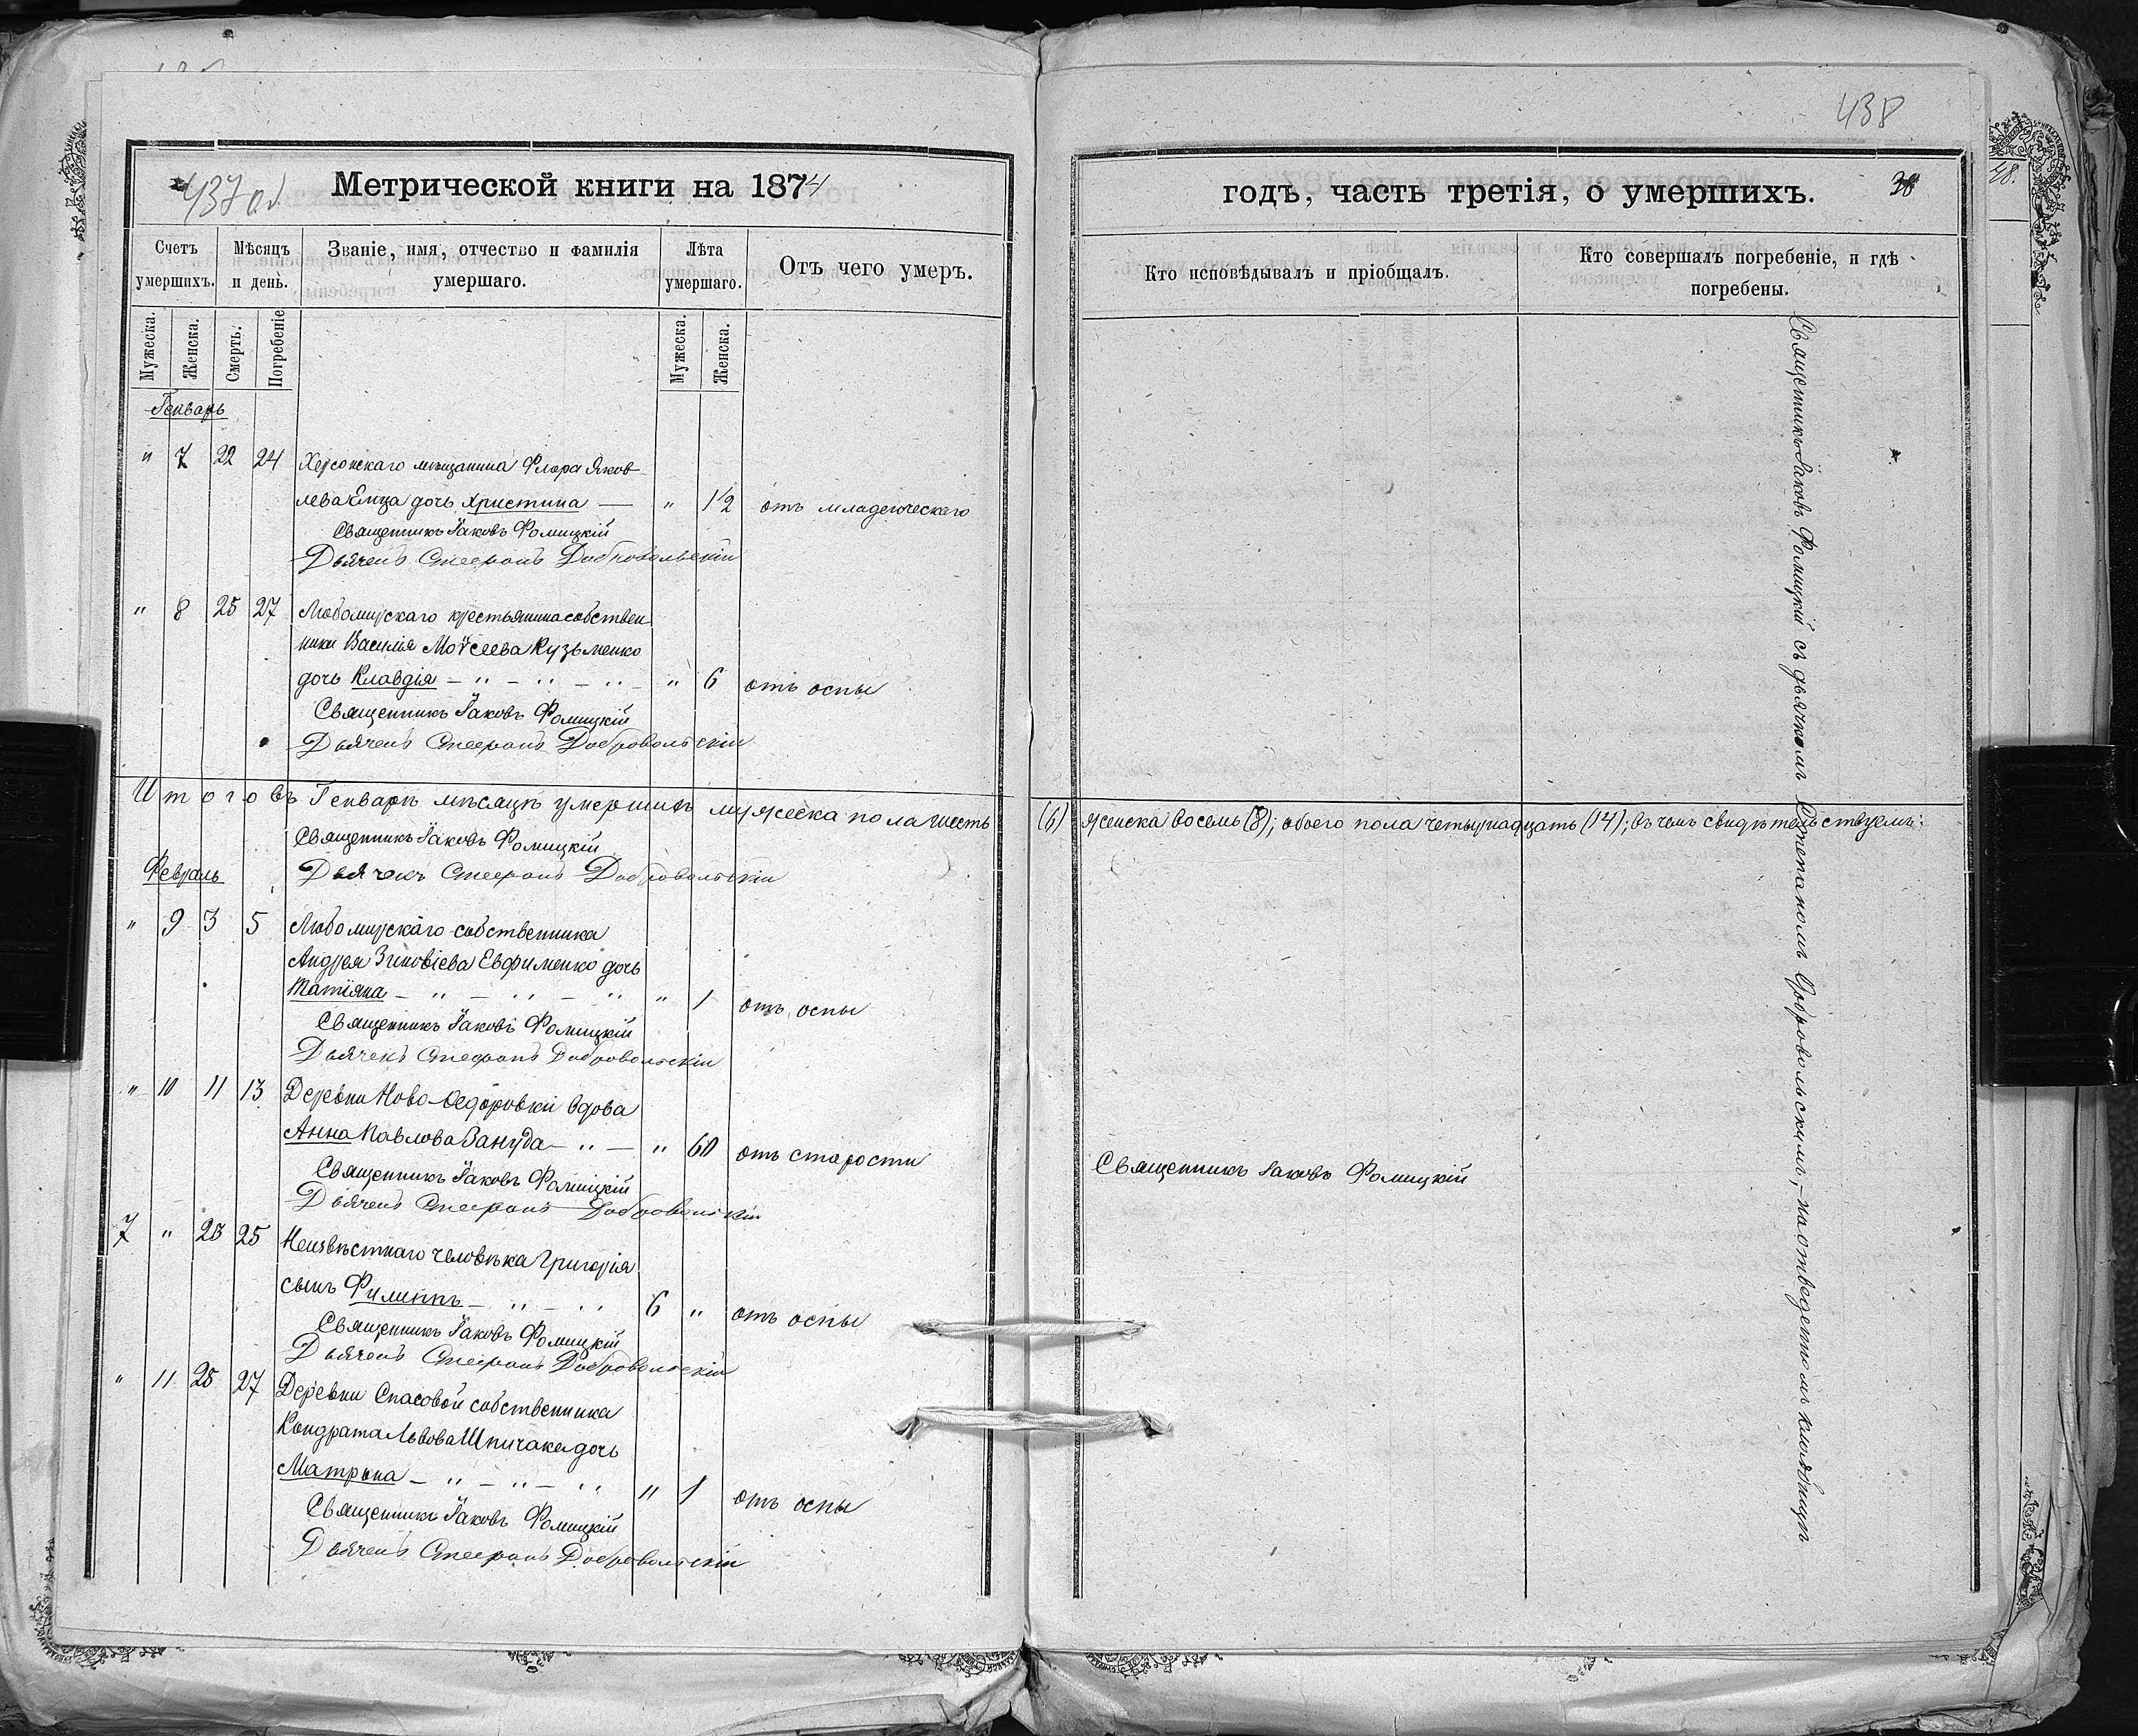 437 об.
Метрической книги на 1874
Счетъ умершихъ.
Мѣсяцъ и день.
Званіе, имя, отчество и фамилія умершаго.
Лѣта умершаго.
Отъ чего умеръ.
Мужеска.
Женска.
Смерть.
Погребеніе
Мужеска.
Женска.
Генварь
" 7 22 24 Херсонскаго мѣщанина Флора Яков-
лева Емца дочь Христина — " 1/2 отъ младенческаго
Священникъ Іаковъ Фомицкій
Дьячекъ Стефанъ Добровольскій
" 8 25 27 Любомирскаго крестьянина собствен
ника Василія Моѵсеева Кузьменко
дочь Клавдія — " — " — " — " 6 отъ оспы
Священникъ Іаковъ Фомицкій
Дьячекъ Стефанъ Добровольскій
Итого въ Генварѣ мѣсяцѣ умершихъ мужеска пола шесть
Священникъ Іаковъ Фомицкій
Дьячекъ Стефанъ Добровольскій
Февраль
" 9 3 5 Любомирскаго собственника
Андрея Зиновіева Евфименко дочь
Татіяна — " — " — " " 1 отъ оспы
Священникъ Іаковъ Фомицкій
Дьячекъ Стефанъ Добровольскій
" 10 11 13 Деревни Ново-Ѳедоровки вдова
Анна Павлова Зануда — " — " 60 отъ старости
Священникъ Іаковъ Фомицкій
Дьячекъ Стефанъ Добровольскій
7 " 23 25 Неизвѣстнаго человѣка Григорія
сынъ Филиппъ — " — " 6 " отъ оспы
Священникъ Іаковъ Фомицкій
Дьячекъ Стефанъ Добровольскій
" 11 25 27 Деревни Спасовой собственника
Кондрата Львова Шпичака дочь
Матрона — " — " — " " 1 отъ оспы
Священникъ Іаковъ Фомицкій
Дьячекъ Стефанъ Добровольскій
438
годъ, часть третія, о умершихъ.
38
48.
Кто исповѣдывалъ и пріобщалъ.
Кто совершалъ погребеніе, и гдѣ погребены.
(6) женска восемь (8); обоего пола четырнадцать (14); въ чемъ свидѣтельствуемъ:
Священникъ Іаковъ Фомицкій
Священникъ Іаковъ Фомицкій съ дьячкомъ Стефаномъ Добровольскимъ, — на отведенномъ кладбищѣ